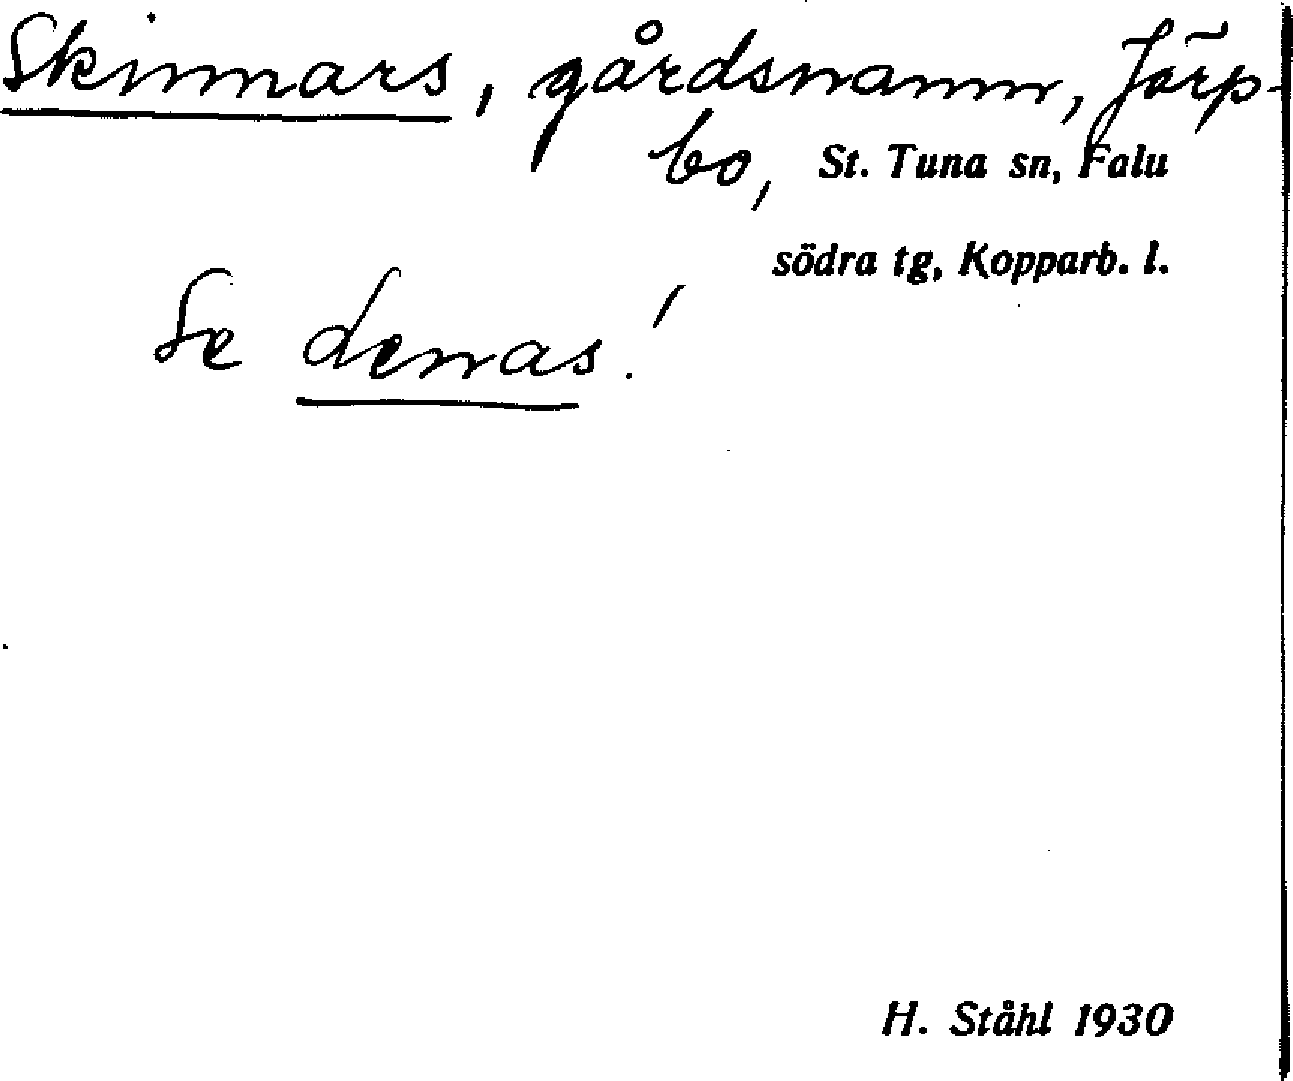 Skinnars, gårdsnamn, Järp-
bo, St. Tuna sn, Falu
södra tg, Kopparb. l.
Se denas!
H. Ståhl 1930